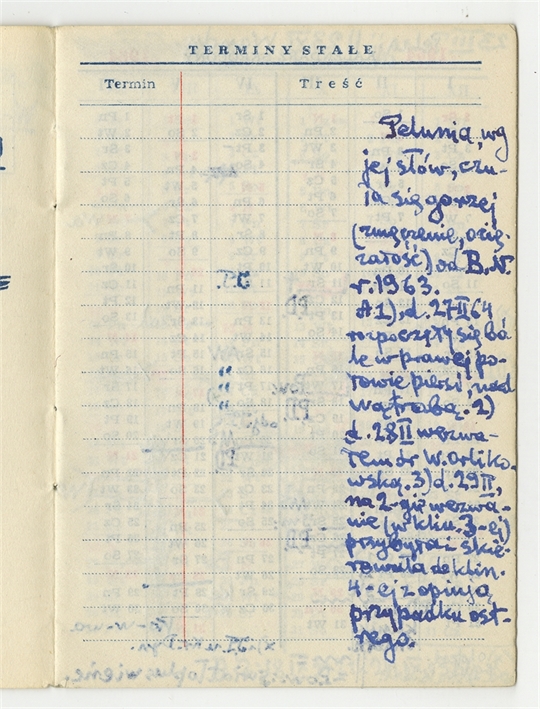 TERMINY STAŁE
Termin Treść
Pelunia, wg
jej słów, czu-
ła się gorzej
(zmęczenie, ocię-
żałość) od B.N.
r. 1963.
A 1), d. 27 II 64
rozpoczęły się bó-
le w prawej po-
łowie piersi, nad
wątrobą. 2)
d. 28 II wezwa-
łem dr W. Orliko-
wską. 3) d. 29 II,
na 2-gie wezwa-
nie (w klin. 3-ej)
przybyła - skie-
rowała do klin.
4-ej z opinią
przypadku ost-
rego.